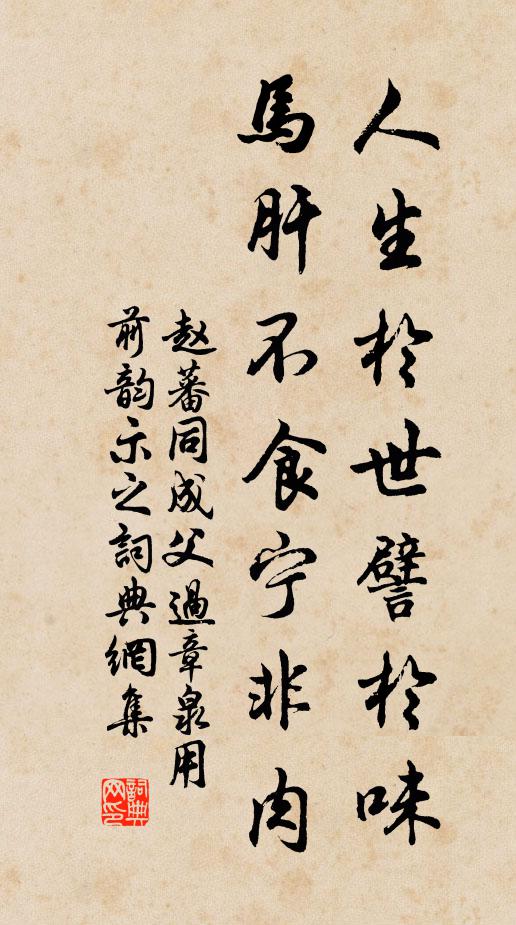 人生於世譬於味
馬肝不食宁非肉
赵蕃同成父過章泉用
前韵示之詞典網集
詞典网印